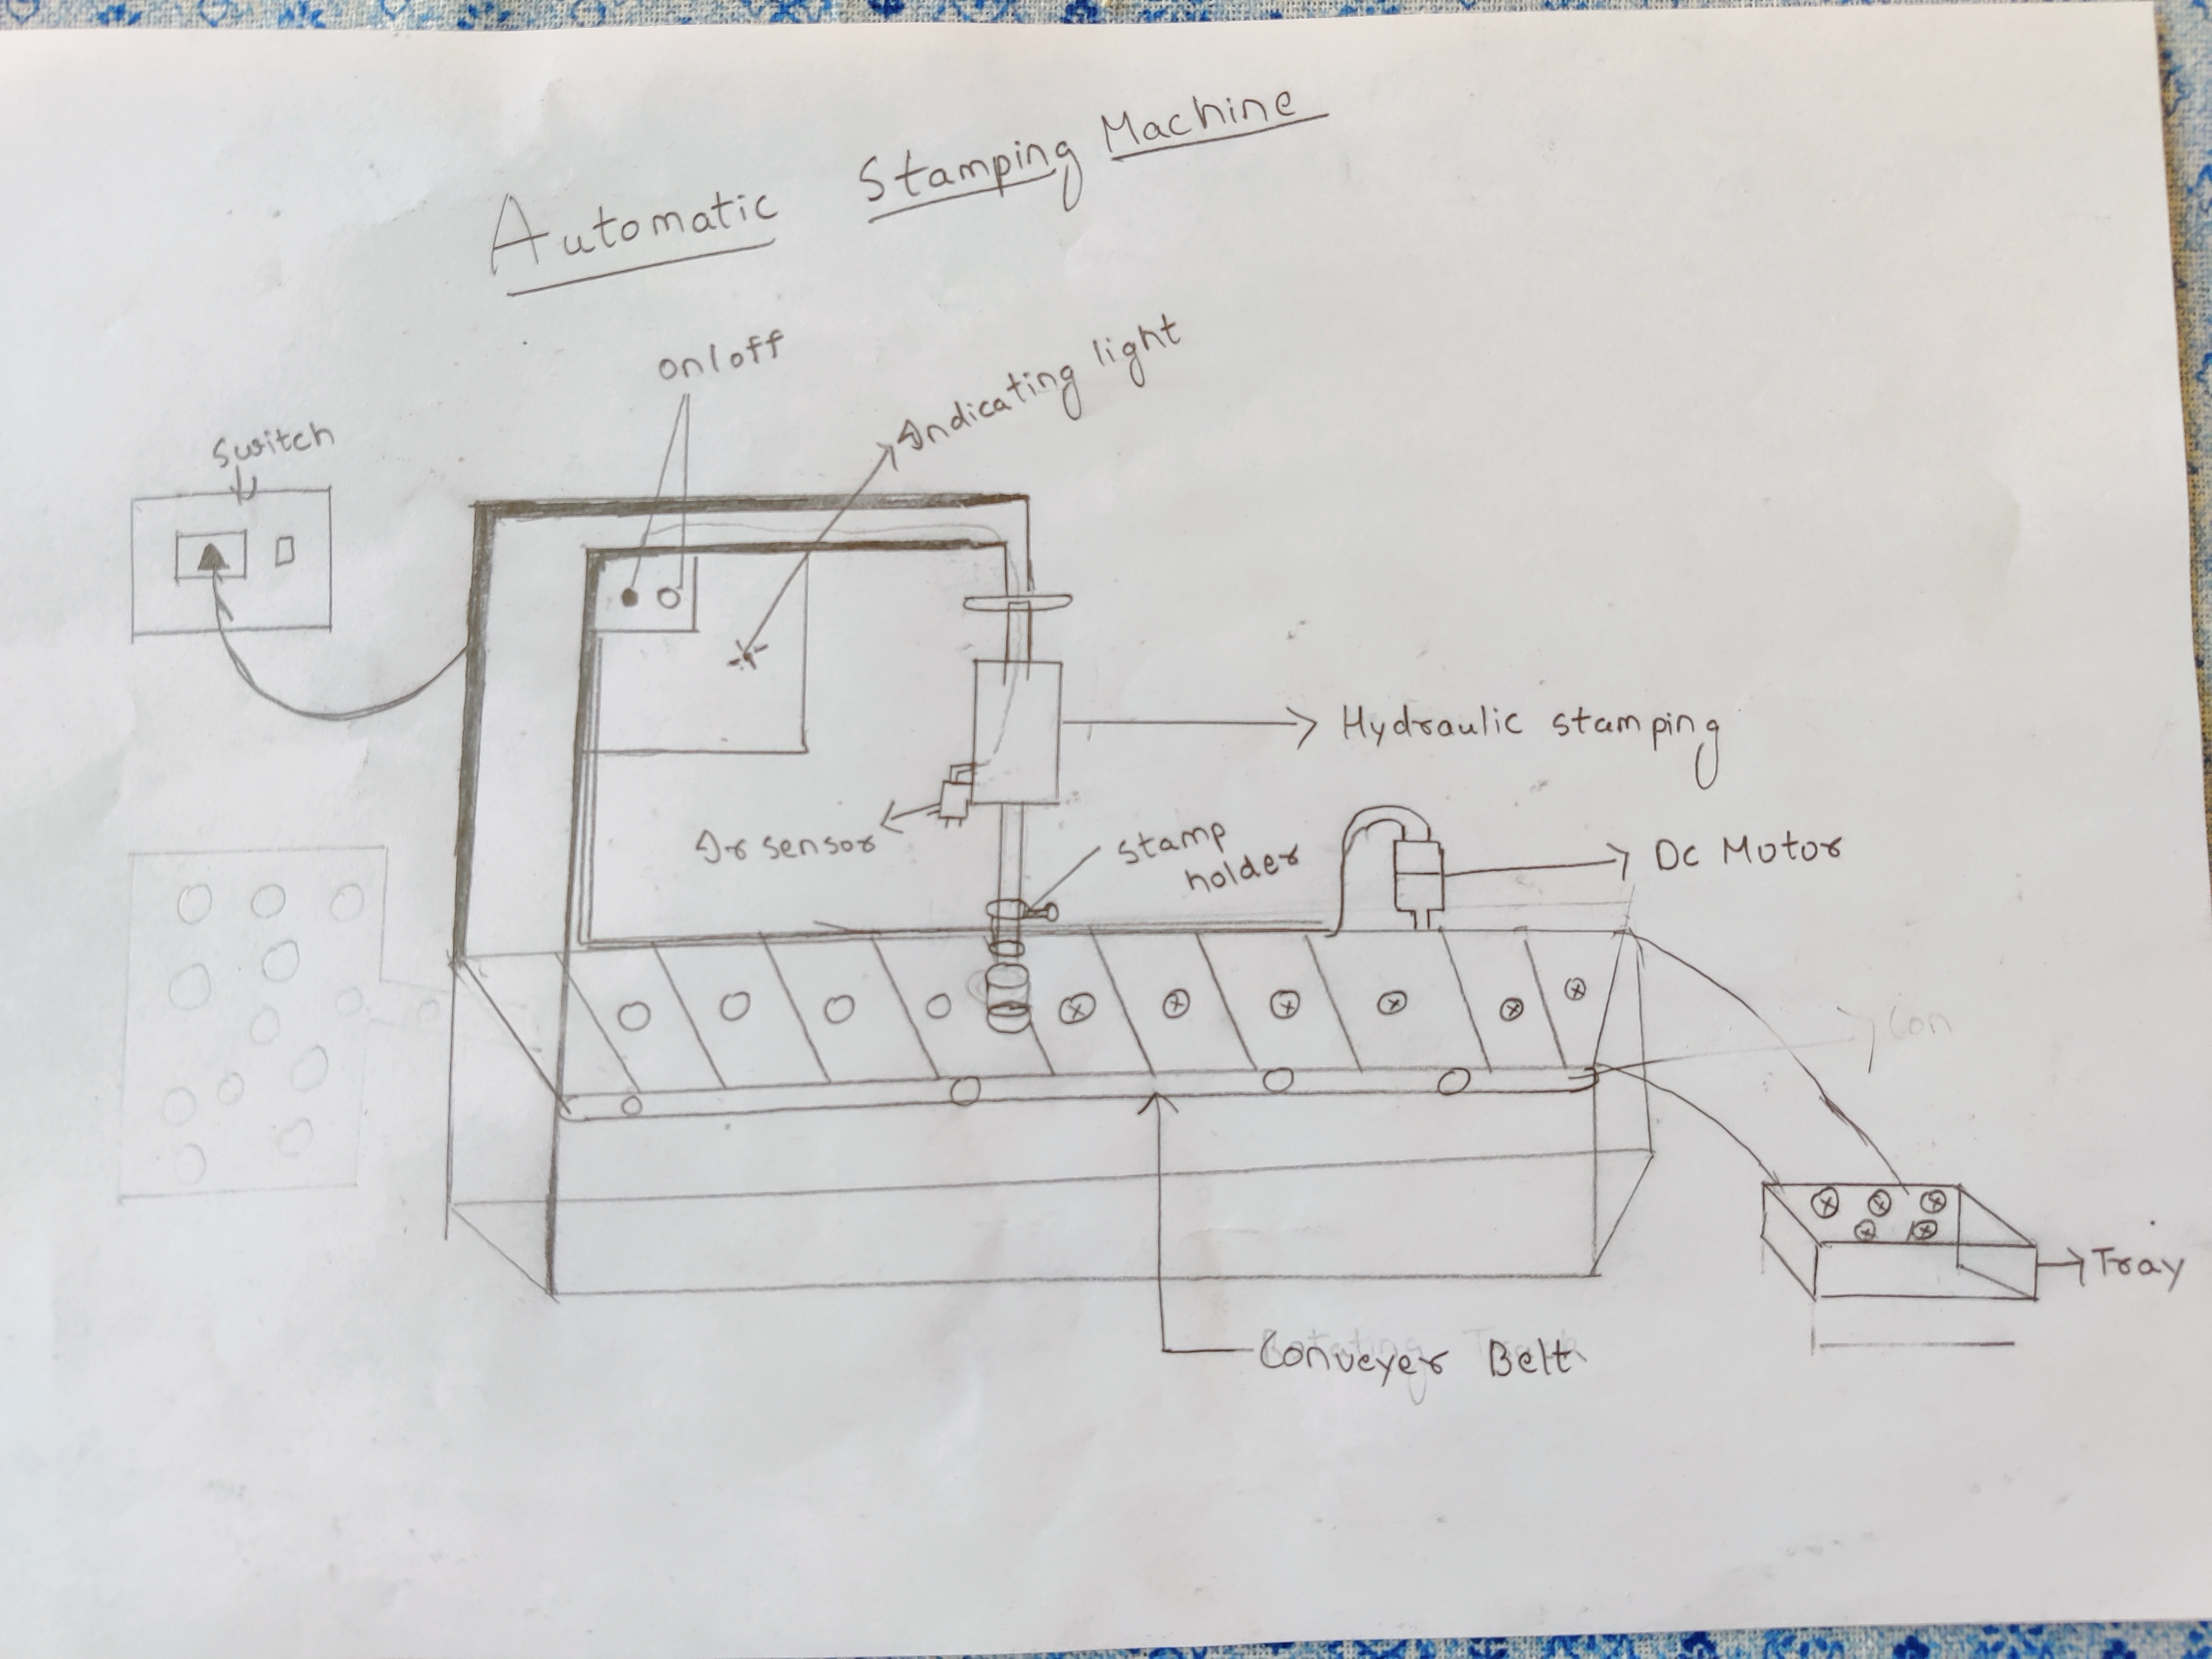 Automatic Stamping Machine
on/off
Indicating light
Switch
Hydraulic stamping
Ir sensor
Stamp
holder
Dc Motor
Con
Tray
Conveyer Belt